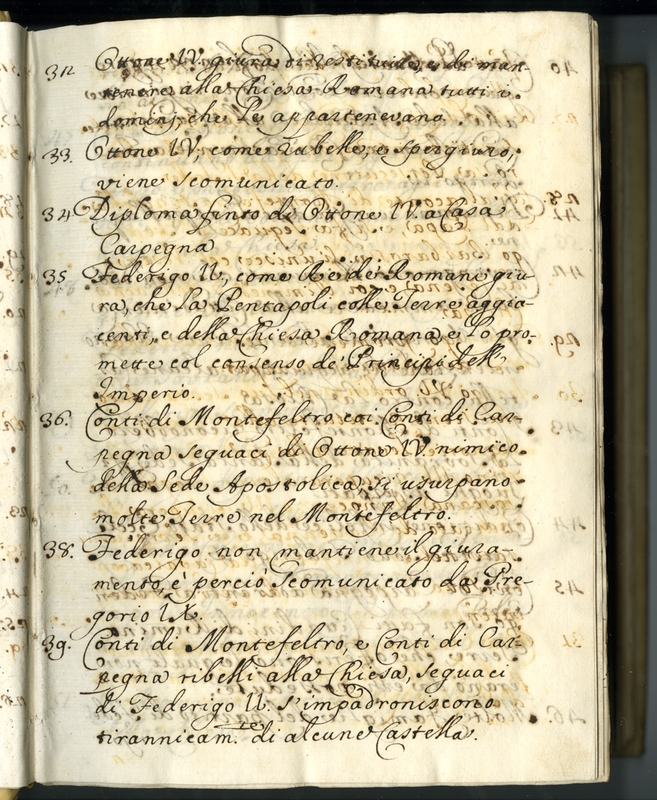 312 Ottone IV. giura di restituire, e di man-
tenere alla Chiesa Romana tutti i
dominj, che le appartenevano.
33. Ottone IV, come rabelle, e spergiuro,
viene scomunicato.
34 Diploma finto di Ottone IV. a Casa
Carpegna
35 Federigo II., come Re de' Romani giu-
ra, che la Pentapoli colle Terre aggia-
centi, e della Chiesa Romana, e lo pro-
mette col consenso de' Principi dell'
Imperio.
36. Conti di Montefeltro coi Conti di Car-
pegna seguaci di Ottone IV. nimico
della Sede Apostolica, si usurpano
molte Terre nel Montefeltro.
38. Federigo non mantiene il giura-
mento, è perciò scomunicato da Gre-
gorio IX.
39. Conti di Montefeltro, e Conti di Car-
pegna ribelli alla Chiesa, seguaci
di Federigo II. s'impadroniscono
tirannicam.te di alcune Castella.